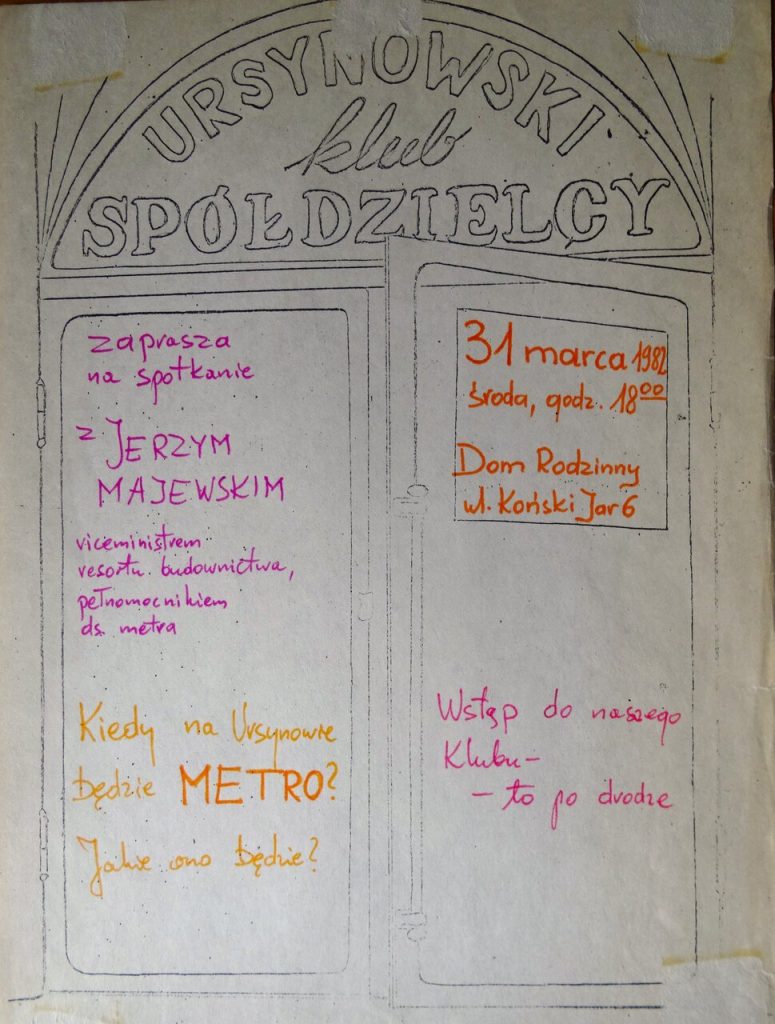 URSYNOWSKI
klub
SPÓŁDZIELCY
zaprasza
na spotkanie
z JERZYM
MAJEWSKIM
viceministrem
resortu budownictwa,
pełnomocnikiem
ds. metra
Kiedy na Ursynowie
będzie METRO?
Jakie ono będzie?
31 marca 1982
środa, godz. 18⁰⁰
Dom Rodzinny
ul. Koński Jar 6
Wstęp do naszego
Klubu-
- to po drodze